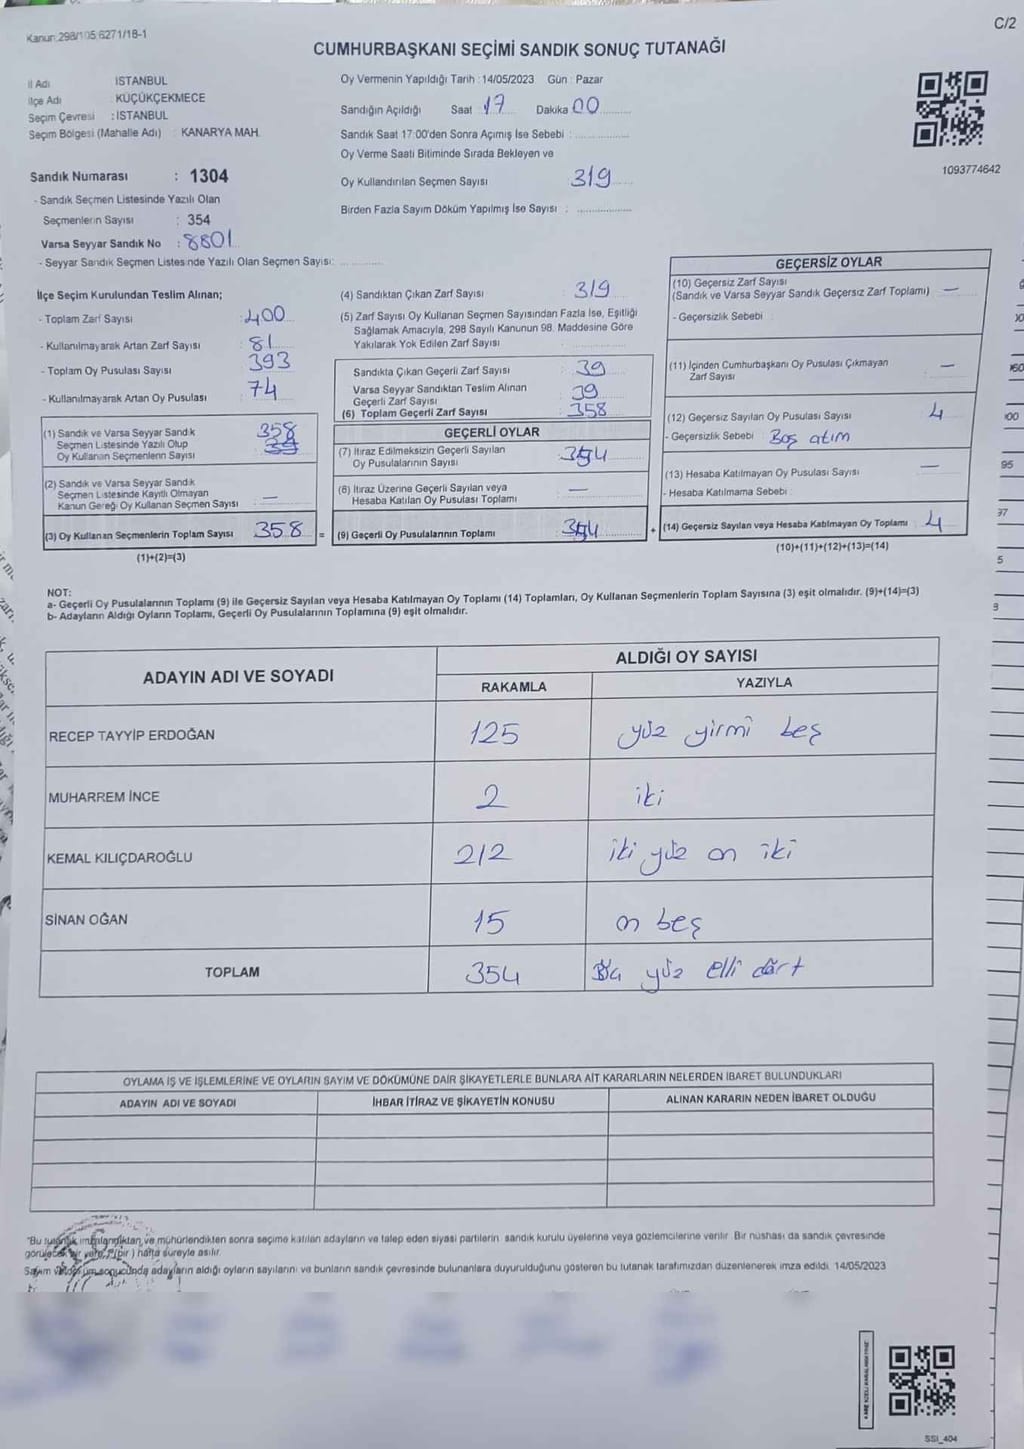 C/2
Kanun: 298/105 6271/18-1
CUMHURBAŞKANI SEÇİMİ SANDIK SONUÇ TUTANAĞI
İl Adı İSTANBUL
İlçe Adı KÜÇÜKÇEKMECE
Seçim Çevresi : İSTANBUL
Seçim Bölgesi (Mahalle Adı) KANARYA MAH.
Oy Vermenin Yapıldığı Tarih : 14/05/2023 Gün : Pazar
Sandığın Açıldığı Saat 17 Dakika 00
Sandık Saat 17:00'den Sonra Açımış İse Sebebi :
Oy Verme Saati Bitiminde Sırada Bekleyen ve
Oy Kullandırılan Seçmen Sayısı 319
Birden Fazla Sayım Döküm Yapılmış İse Sayısı :
1093774642
Sandık Numarası : 1304
- Sandık Seçmen Listesinde Yazılı Olan
Seçmenlerin Sayısı : 354
Varsa Seyyar Sandık No : 8801
- Seyyar Sandık Seçmen Listesinde Yazılı Olan Seçmen Sayısı:
İlçe Seçim Kurulundan Teslim Alınan;
- Toplam Zarf Sayısı : 400
- Kullanılmayarak Artan Zarf Sayısı : 81
- Toplam Oy Pusulası Sayısı 393
- Kullanılmayarak Artan Oy Pusulası 74
(1) Sandık ve Varsa Seyyar Sandık
Seçmen Listesinde Yazılı Olup
Oy Kullanan Seçmenlerin Sayısı 358
(2) Sandık ve Varsa Seyyar Sandık
Seçmen Listesinde Kayıtlı Olmayan
Kanun Gereği Oy Kullanan Seçmen Sayısı —
(3) Oy Kullanan Seçmenlerin Toplam Sayısı 358 =
(1)+(2)=(3)
(4) Sandıktan Çıkan Zarf Sayısı 319
(5) Zarf Sayısı Oy Kullanan Seçmen Sayısından Fazla İse, Eşitliği
Sağlamak Amacıyla, 298 Sayılı Kanunun 98. Maddesine Göre
Yakılarak Yok Edilen Zarf Sayısı
Sandıkta Çıkan Geçerli Zarf Sayısı 39
Varsa Seyyar Sandıktan Teslim Alınan
Geçerli Zarf Sayısı 39
(6) Toplam Geçerli Zarf Sayısı : 358
GEÇERLİ OYLAR
(7) İtiraz Edilmeksizin Geçerli Sayılan
Oy Pusulalarının Sayısı 354
(8) İtiraz Üzerine Geçerli Sayılan veya
Hesaba Katılan Oy Pusulası Toplamı —
(9) Geçerli Oy Pusulalarının Toplamı 354 +
GEÇERSİZ OYLAR
(10) Geçersiz Zarf Sayısı
(Sandık ve Varsa Seyyar Sandık Geçersiz Zarf Toplamı) —
- Geçersizlik Sebebi :
(11) İçinden Cumhurbaşkanı Oy Pusulası Çıkmayan
Zarf Sayısı —
(12) Geçersiz Sayılan Oy Pusulası Sayısı 4
- Geçersizlik Sebebi Boş atım
(13) Hesaba Katılmayan Oy Pusulası Sayısı —
- Hesaba Katılmama Sebebi
(14) Geçersiz Sayılan veya Hesaba Katılmayan Oy Toplamı 4
(10)+(11)+(12)+(13)=(14)
NOT:
a- Geçerli Oy Pusulalarının Toplamı (9) ile Geçersiz Sayılan veya Hesaba Katılmayan Oy Toplamı (14) Toplamları, Oy Kullanan Seçmenlerin Toplam Sayısına (3) eşit olmalıdır. (9)+(14)=(3)
b- Adayların Aldığı Oyların Toplamı, Geçerli Oy Pusulalarının Toplamına (9) eşit olmalıdır.
ADAYIN ADI VE SOYADI ALDIĞI OY SAYISI
RAKAMLA YAZIYLA
RECEP TAYYİP ERDOĞAN 125 yüz yirmi beş
MUHARREM İNCE 2 iki
KEMAL KILIÇDAROĞLU 212 iki yüz on iki
SİNAN OĞAN 15 on beş
TOPLAM 354 yüz elli dört
OYLAMA İŞ VE İŞLEMLERİNE VE OYLARIN SAYIM VE DÖKÜMÜNE DAİR ŞİKAYETLERLE BUNLARA AİT KARARLARIN NELERDEN İBARET BULUNDUKLARI
ADAYIN ADI VE SOYADI İHBAR İTİRAZ VE ŞİKAYETİN KONUSU ALINAN KARARIN NEDEN İBARET OLDUĞU
"Bu tutanak imzalandıktan ve mühürlendikten sonra seçime katılan adayların ve talep eden siyasi partilerin sandık kurulu üyelerine veya gözlemcilerine verilir. Bir nüshası da sandık çevresinde
görülecek bir yere, 7 (bir) hafta süreyle asılır.
Sayım ve döküm sonucunda adayların aldığı oyların sayılarını ve bunların sandık çevresinde bulunanlara duyurulduğunu gösteren bu tutanak tarafımızdan düzenlenerek imza edildi. 14/05/2023
SSI_404